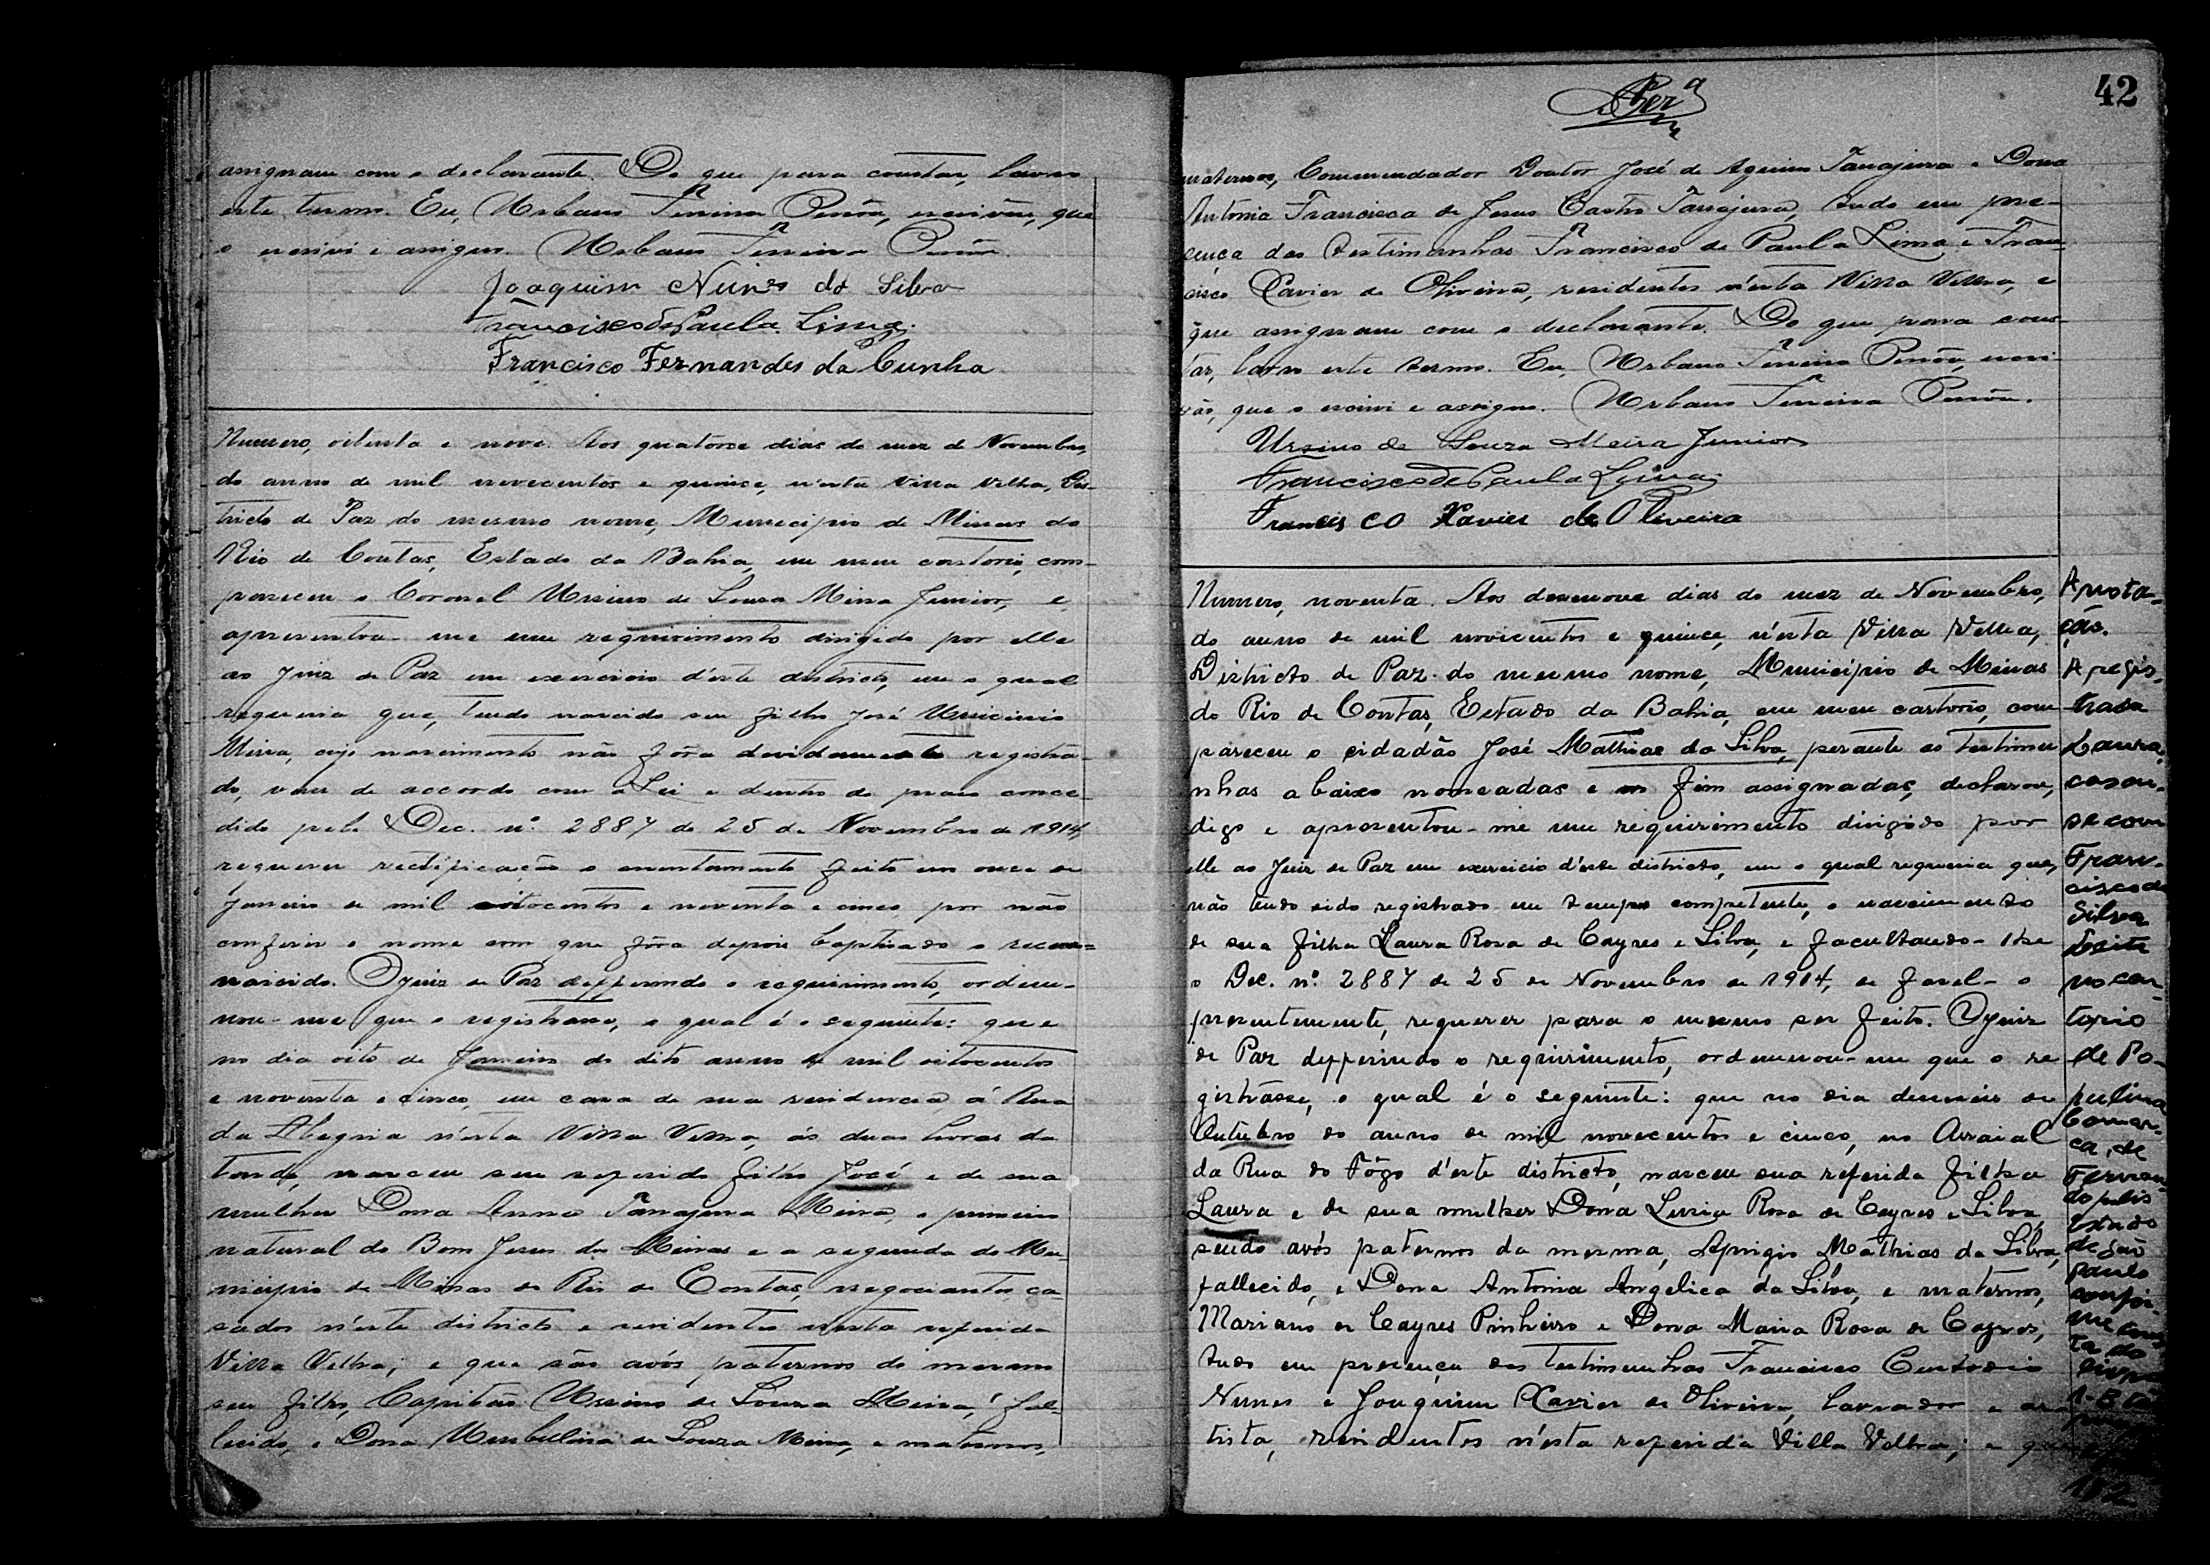 assignam com o declarante. Do que para constar, lavro
este termo. Eu, Urbano Ferreira, escrivão, que
o escrivi e assigno. Urbano Ferreira
Joaquim Nunes da Silva
Francisco de Paula Lima
Francisco Fernandes da Cunha
Numero, oitenta e nove. Aos quatorse dias do mez de Novembro,
do anno de mil novecentos e quinse, n'esta Villa Velha, Dis-
tricto de Paz do mesmo nome, Municipio de Minas do
Rio de Contas, Estado da Bahia, em meu cartorio, com-
pareceu o Coronel Ursino de Souza Meira Junior, e
apresentou-me um requirimento dirigido por elle
ao Juiz de Paz em exercicio d'este districto, em o qual
requeria que, tendo nascido seu filho José
Meira, cujo nascimento não fôra devidamente registra-
do, vem de accordo com a Lei e dentro do praso conce-
dido pelo Dec. nº. 2887 de 25 de Novembro de 1914,
requerer rectificação o assentamento feito em onze de
Janeiro de mil oitocentos e noventa e cinco, por não
conferir o nome com que fôra depois baptisado o recem=
nascido. O Juiz de Paz defferindo o requirimento, orden-
nou-me que o registrasse, o qual é o seguinte: que
no dia oito de Janeiro do dito anno de mil oitocentos
e noventa e cinco, em casa de sua residencia, á Rua
da Alegria n'esta Villa Velha, ás duas horas da
tarde, nasceu seu referido filho José e de sua
mulher Dona Anna Tanajura Meira, o primeiro
natural do Bom Jesus dos Meiras e a segunda do Mu-
nicipio de Minas do Rio de Contas, negociantes, ca-
sados n'este districto e residentes nesta referida
Villa Velha; e que são avós paternos do mesmo
seu filho, Capitão Ursino de Souza Meira, fal-
lecido, e Dona Umbellina de Souza Meira, e maternos,
42
maternos, Commendador Doutor José de Aquino Tanajura e Dona
Antonia Francisca de Jesus Castro Tanajura, tudo em pre-
sença das testimunhas Francisco de Paula Lima e Fran-
cisco Xavier de Oliveira, residentes n'esta Villa Velha, e
que assignam com o declarante. Do que para cons-
tar, lavro este termo. Eu, Urbano Ferreira, escri-
vão, que o escrivi e assigno. Urbano Ferreira
Ursino de Souza Meira Junior
Francisco de Paula Lima
Francisco Xavier de Oliveira
Numero, noventa. Aos desenove dias do mez de Novembro,
do anno de mil novecentos e quinse, n'esta Villa Velha,
Districto de Paz do mesmo nome, Municipio de Minas
do Rio de Contas, Estado da Bahia, em meu cartorio, com
pareceu o cidadão José Mathias da Silva, perante as testimu
nhas abaixo nomeadas e no fim assignadas, declarou,
digo e apresentou-me um requirimento dirigido por
elle ao Juiz de Paz em exercicio d'este districto, em o qual requeria que,
não tendo sido registrado em tempo competente, o nascimento
de sua filha Laura Rosa de Cayres e Silva, e facultando-lhe
o Dec. nº. 2887 de 25 de Novembro de 1914, de fasel-o
presentemente, requerer para o mesmo ser feito. O Juiz
de Paz defferindo o requirimento, ordennou-me que o re
gistrásse, o qual é o seguinte: que no dia deseseis de
Outubro do anno de mil novecentos e cinco, no Arraial
da Rua do Fôgo d'este districto, nasceu sua referida filha
Laura e de sua mulher Dona Luzia Rosa de Cayres e Silva,
sendo avós paternos da mesma, Aprigio Mathias da Silva,
fallecido, e Dona Antonia Angelica da Silva, e maternos,
Mariano de Cayres Pinheiro e Dona Maria Rosa de Cayres,
tudo em presença das testimunhas Francisco Custodio
Nunes e Joaquim Xavier de Oliveira, lavrador e ar
tista, residentes n'esta referida Villa Velha; e que
Anota-
ção.
A regis-
trada
Laura,
casou-
se com
Fran-
cisco da
Silva
Leite
no car-
torio
de Po-
pulina
Comar-
ca, de
Fernan-
dopolis
Estado
de São
Paulo
confor-
me cons-
ta do
livro
1-B
182